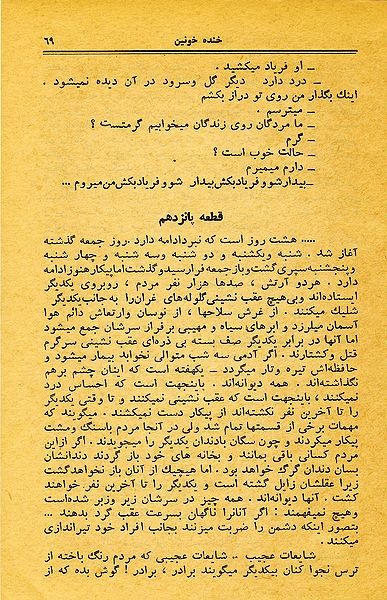 خنده خونین ۶۹
ــ او فریاد میکشید .
ــ درد دارد دیگر گل وسرود در آن دیده نمیشود .
اینك بگذار من روی تو دراز بکشم
ــ میترسم .
ــ ما مردگان روی زندگان میخوابیم گرمتست ؟
ــ گرم
ــ حالت خوب است ؟
ــ دارم میمیرم
ــ بیدار شو و فریاد بکش بیدار شو و فریاد بکش من میروم ...
قطعه پانزدهم
..... هشت روز است که نبرد ادامه دارد . روز جمعه گذشته
آغاز شد . شنبه ویکشنبه و دو شنبه وسه شنبه و چهار شنبه
و پنجشنبه سپری گشت و باز جمعه فرا رسید و گذشت اما پیکار هنوز ادامه
دارد . هر دو آرتش ، صدها هزار نفر مردم ، روبروی یکدیگر
ایستاده‌اند و بی‌هیچ عقب نشینی گلوله‌های غران را به جانب یکدیگر
شلیك میکنند . از غرش سلاحها ، از نوسان وارتعاش دائم هوا
آسمان میلرزد و ابرهای سیاه و مهیبی بر فراز سرشان جمع میشود
اما آنها در برابر یکدیگر صف بسته بی ذره‌ای عقب نشینی سرگرم
قتل و کشتارند . اگر آدمی سه شب متوالی نخوابد بیمار میشود و
حافظه‌اش تیره وتار میگردد ــ یکهفته است که اینان چشم برهم
نگذاشته‌اند . همه دیوانه‌اند . باینجهت است که احساس درد
نمیکنند ، باینجهت است که عقب نشینی نمیکنند و تا وقتی یکدیگر
را تا آخرین نفر نکشته‌اند از پیکار دست نمیکشند . میگویند که
مهمات برخی از قسمتها تمام شد ولی در آنجا مردم باسنگ ومشت
پیکار میکردند و چون سگان بادندان یکدیگر را میجویدند . اگر ازاین
مردم کسانی باقی بمانند و بخانه های خود باز گردند دندانشان
بسان دندان گرگ خواهد بود . اما هیچیك از آنان باز نخواهد گشت
زیرا عقلشان زایل گشته است و یکدیگر را تا آخرین نفر خواهند
کشت . آنها دیوانه‌اند . همه چیز در سرشان زیر وزبر شده‌است
وهیچ نمیفهمند : اگر آنانرا ناگهان بسرعت عقب گرد بدهند ...
بتصور اینکه دشمن را ضربت میزنند بجانب افراد خود تیراندازی
میکنند .
شایعات عجیب .. شایعات عجیبی که مردم رنگ باخته از
ترس نجوا کنان بیکدیگر میگویند برادر ، برادر ! گوش بده که از